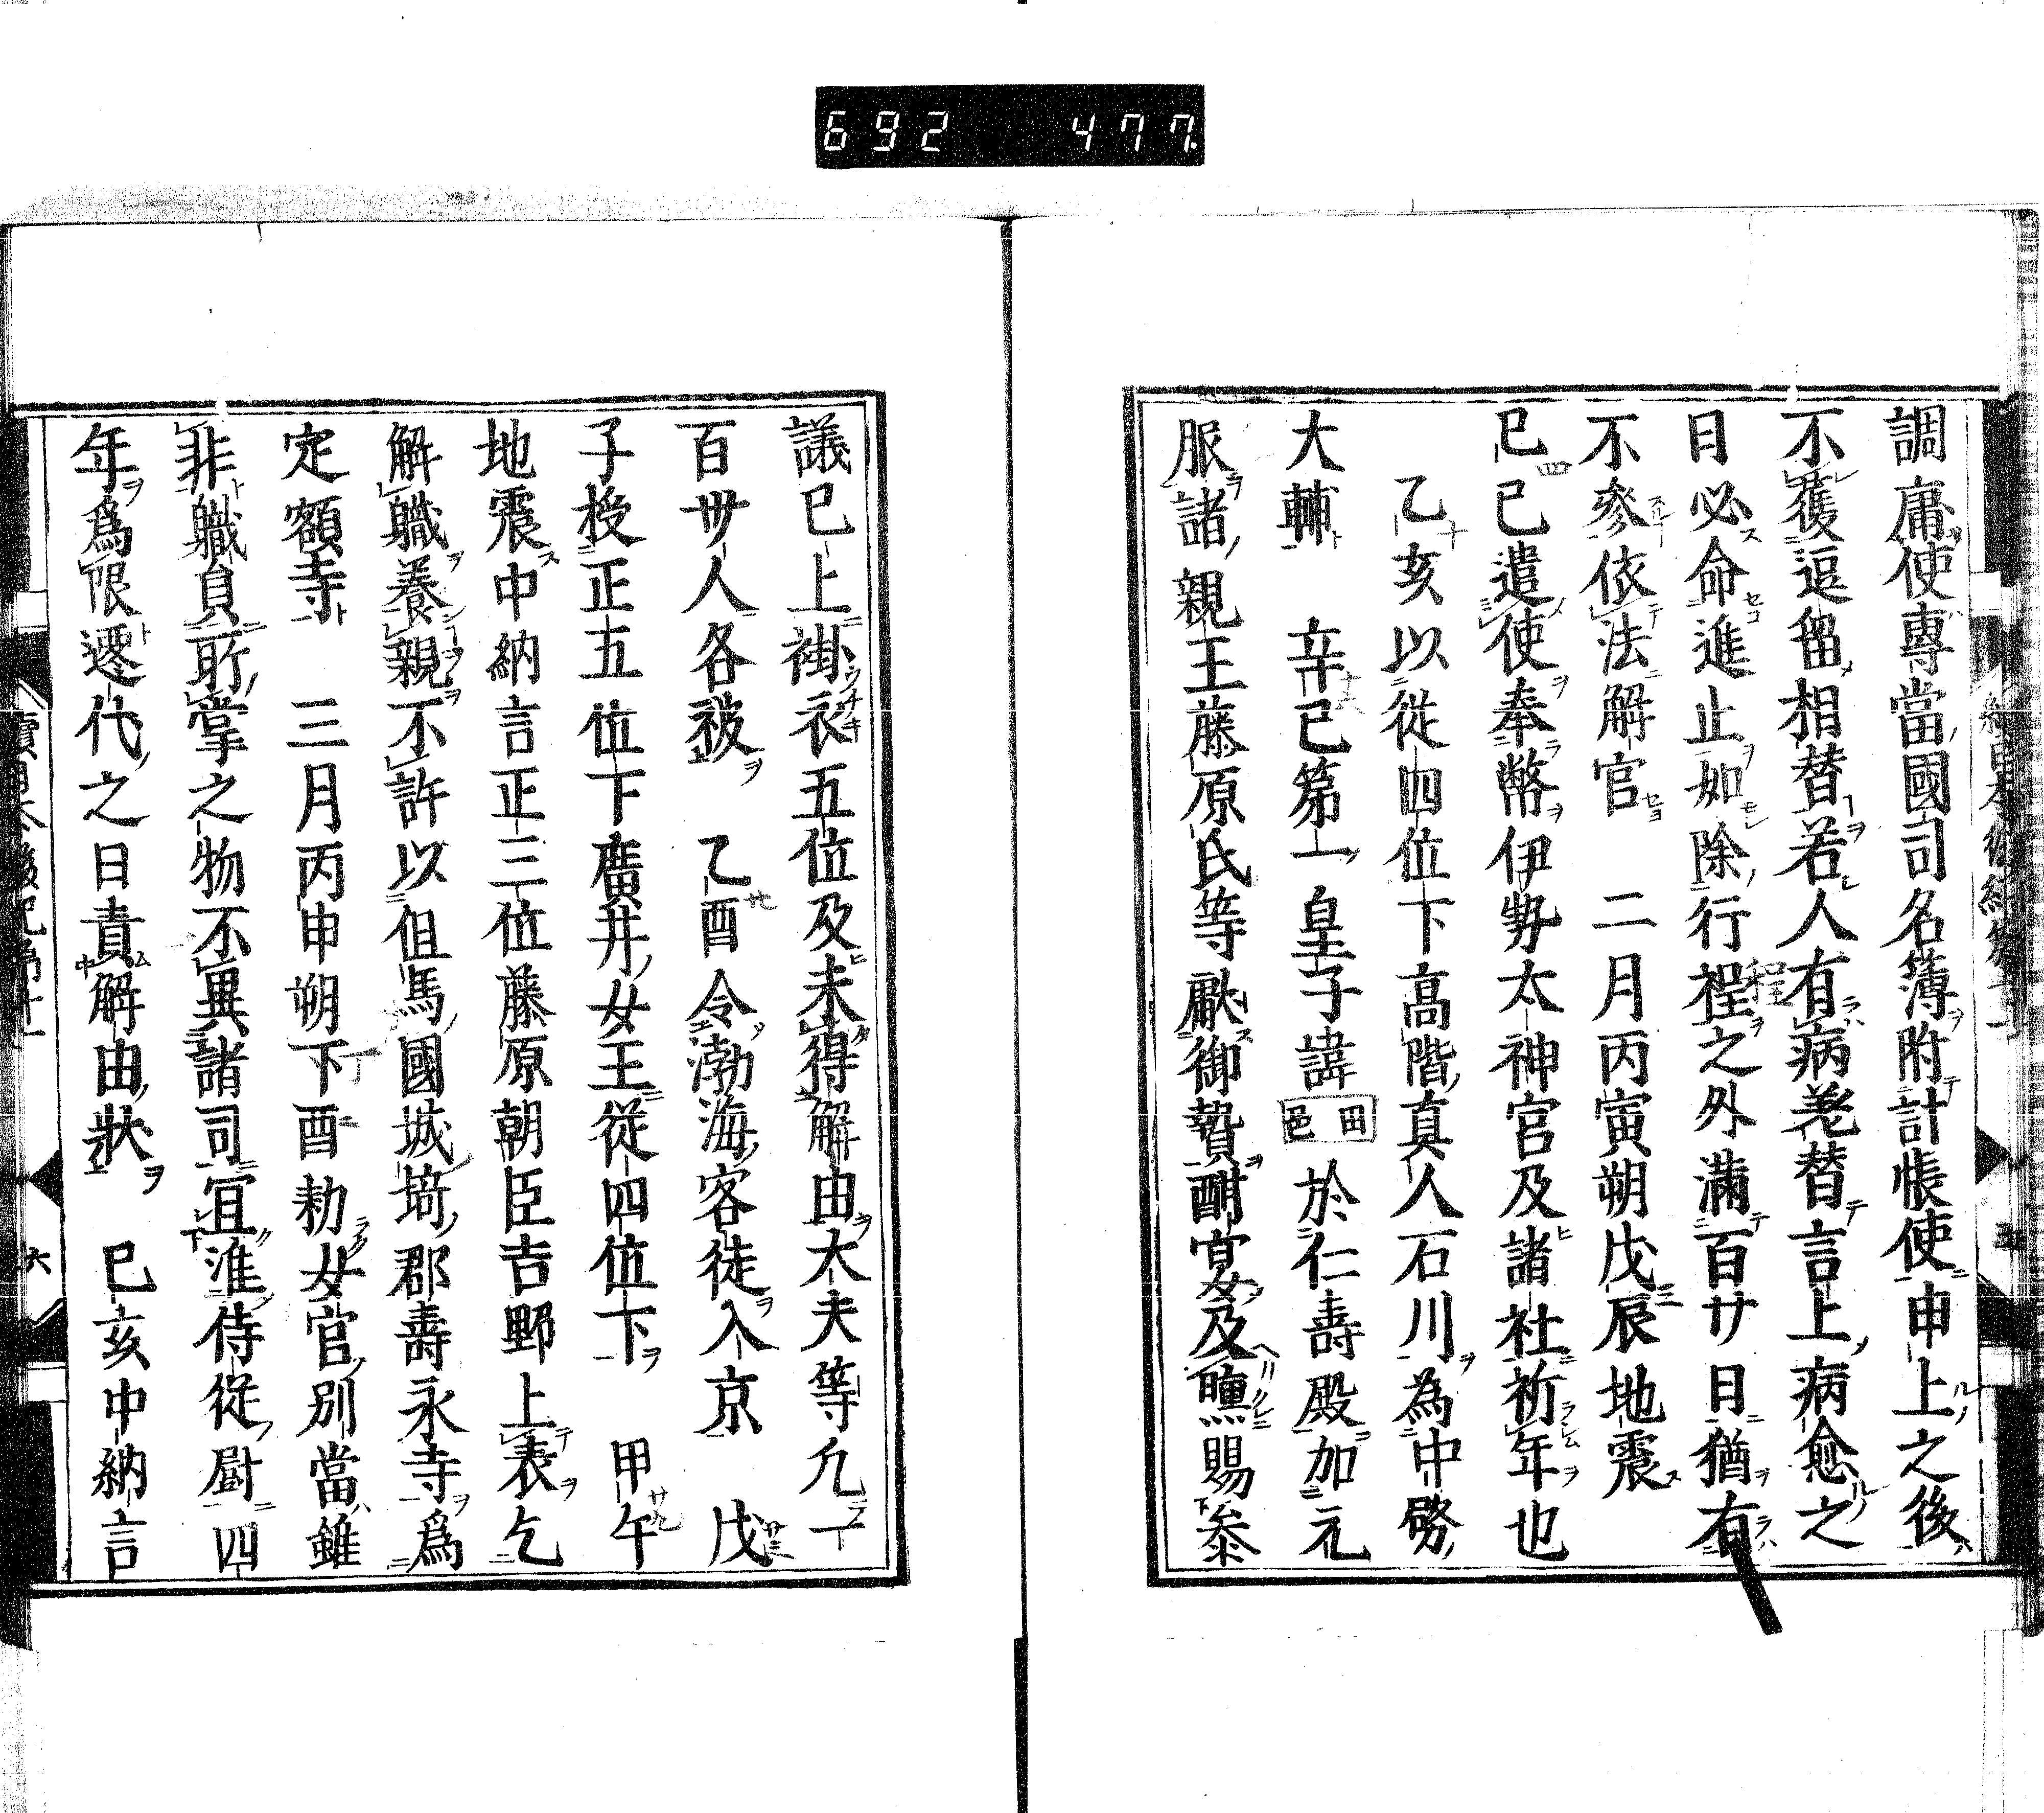 692 477
調庸使專當國司名簿附計帳使申上之後
不獲逗留相替若人有病差替言上病愈之
日必命進止如除行程之外滿百廿日猶有
不參依法解官 二月丙寅朔戊辰地震
己巳遣使奉幣伊勢太神宮及諸社祈年也
乙亥以從四位下高階真人石川為中務
大輔 辛巳第一皇子諱田邑於仁壽殿加元
服諸親王藤原氏等獻御贄酣宴及曛賜參
議已上褂衣五位及未得解由大夫等凡一
百丗人各被 乙酉令渤海客徒入京 戊
子授正五位下廣井女王從四位下 甲午
地震中納言正三位藤原朝臣吉野上表乞
解職養親不許以但馬國城埼郡壽永寺爲
定額寺 三月丙申朔下酉勑女官別當雖
非職員所掌之物不異諸司宜准侍從厨四
年爲限遷代之日責解由狀 已亥中納言
六